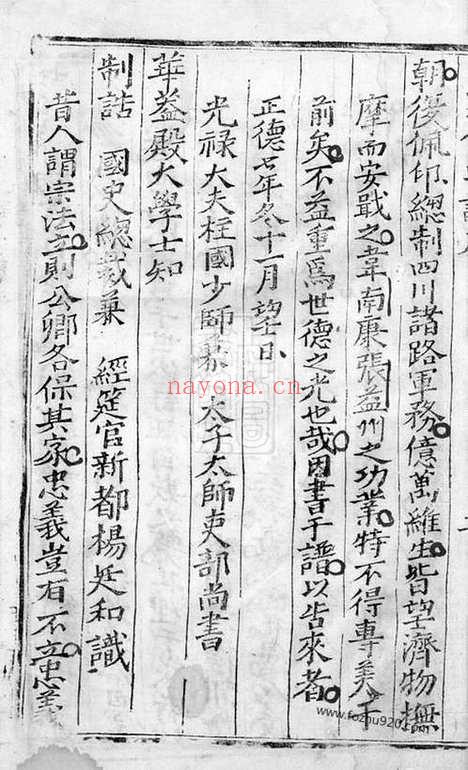 朝復佩印總制四川諸路軍務億萬維生皆望濟物撫
摩而安戢之韋南康張益州之功業特不得專美于
前矣不益重為世德之光也哉因書于譜以告來者
正德七年冬十一月望日
光禄大夫柱國少師兼 太子太師吏部尚書
華蓋殿大學士知
制誥 國史總裁兼 經筵官新都楊廷和識
昔人謂宗法立則公卿各保其家忠義豈有不立忠義
nayona.cn